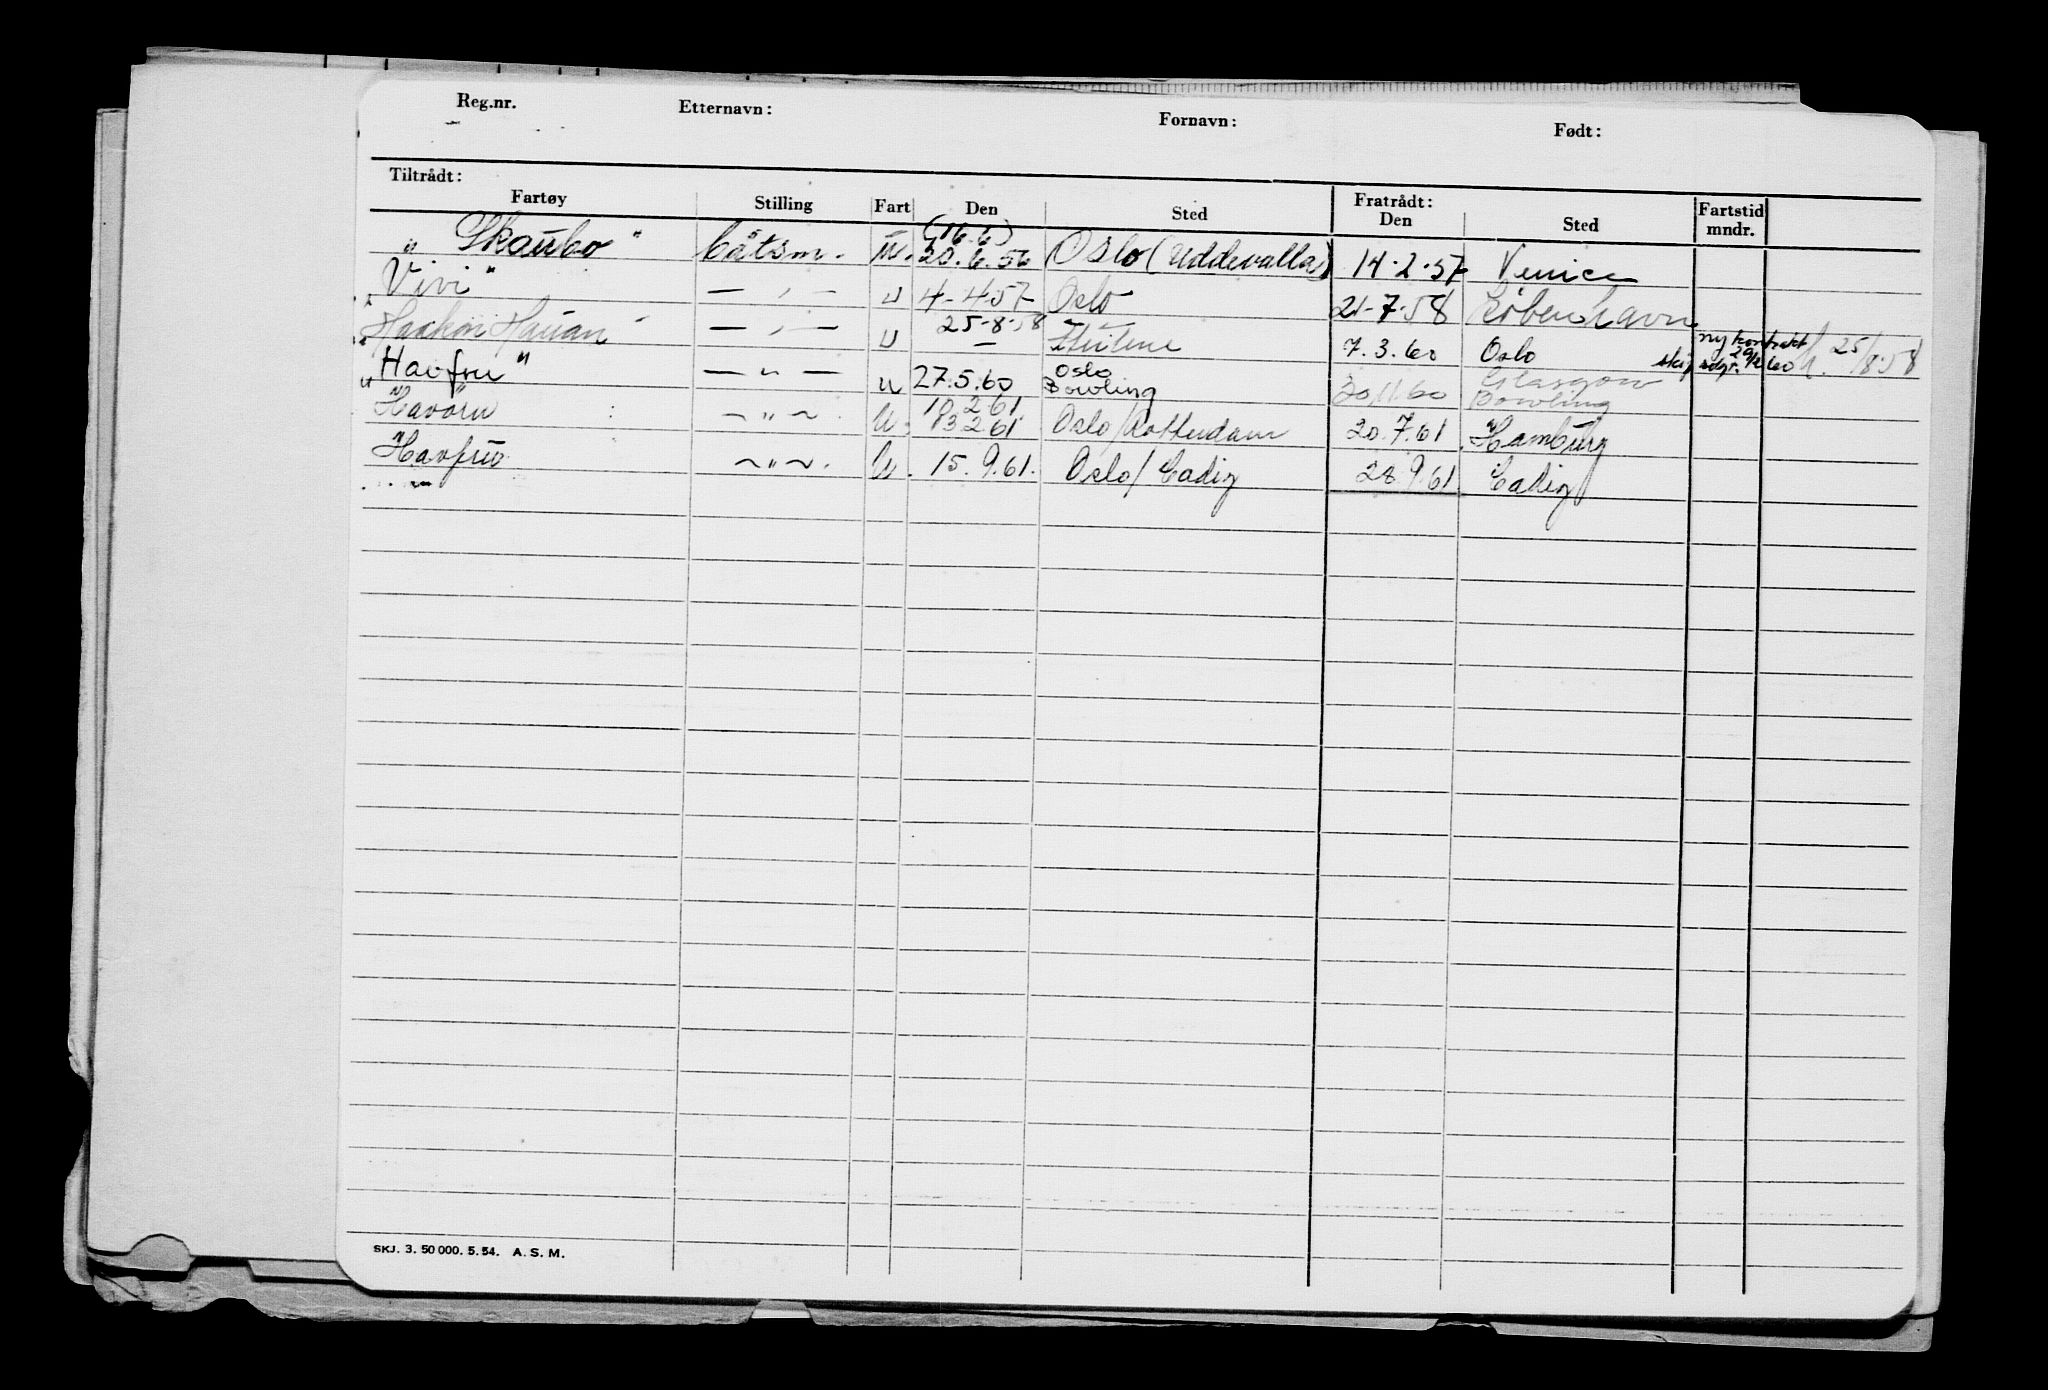 Reg.nr. Etternavn: Fornavn: Født:
Tiltrådt: Fratrådt:
Fartøy Stilling Fart Den Sted Den Sted Fartstid mndr.
(16.6)
"Skaubo" båtsm. u. 20.6.56 Oslo (Uddevalla) 14.2.57 Venice
"Vivi" — , — u 4-4-57 Oslo 21-7-58 København
"Haakon Hauan" — , — u 25-8-58 — 7.3.60 Oslo ny kontrakt 25/8-58
skip solgt. 60
"Havfru" — " — u 27.5.60 Oslo Bowling 30.11.60 Glasgow Bowling
"Havørn" ~ " ~ u. 10.2.61 13 2 61 Oslo/Rotterdam 20.7.61 Hamburg
"Havfru" ~ " ~. u. 15.9.61. Oslo/Cadiz 28.9.61 Cadiz
SKJ. 3. 50 000. 5. 54. A. S. M.